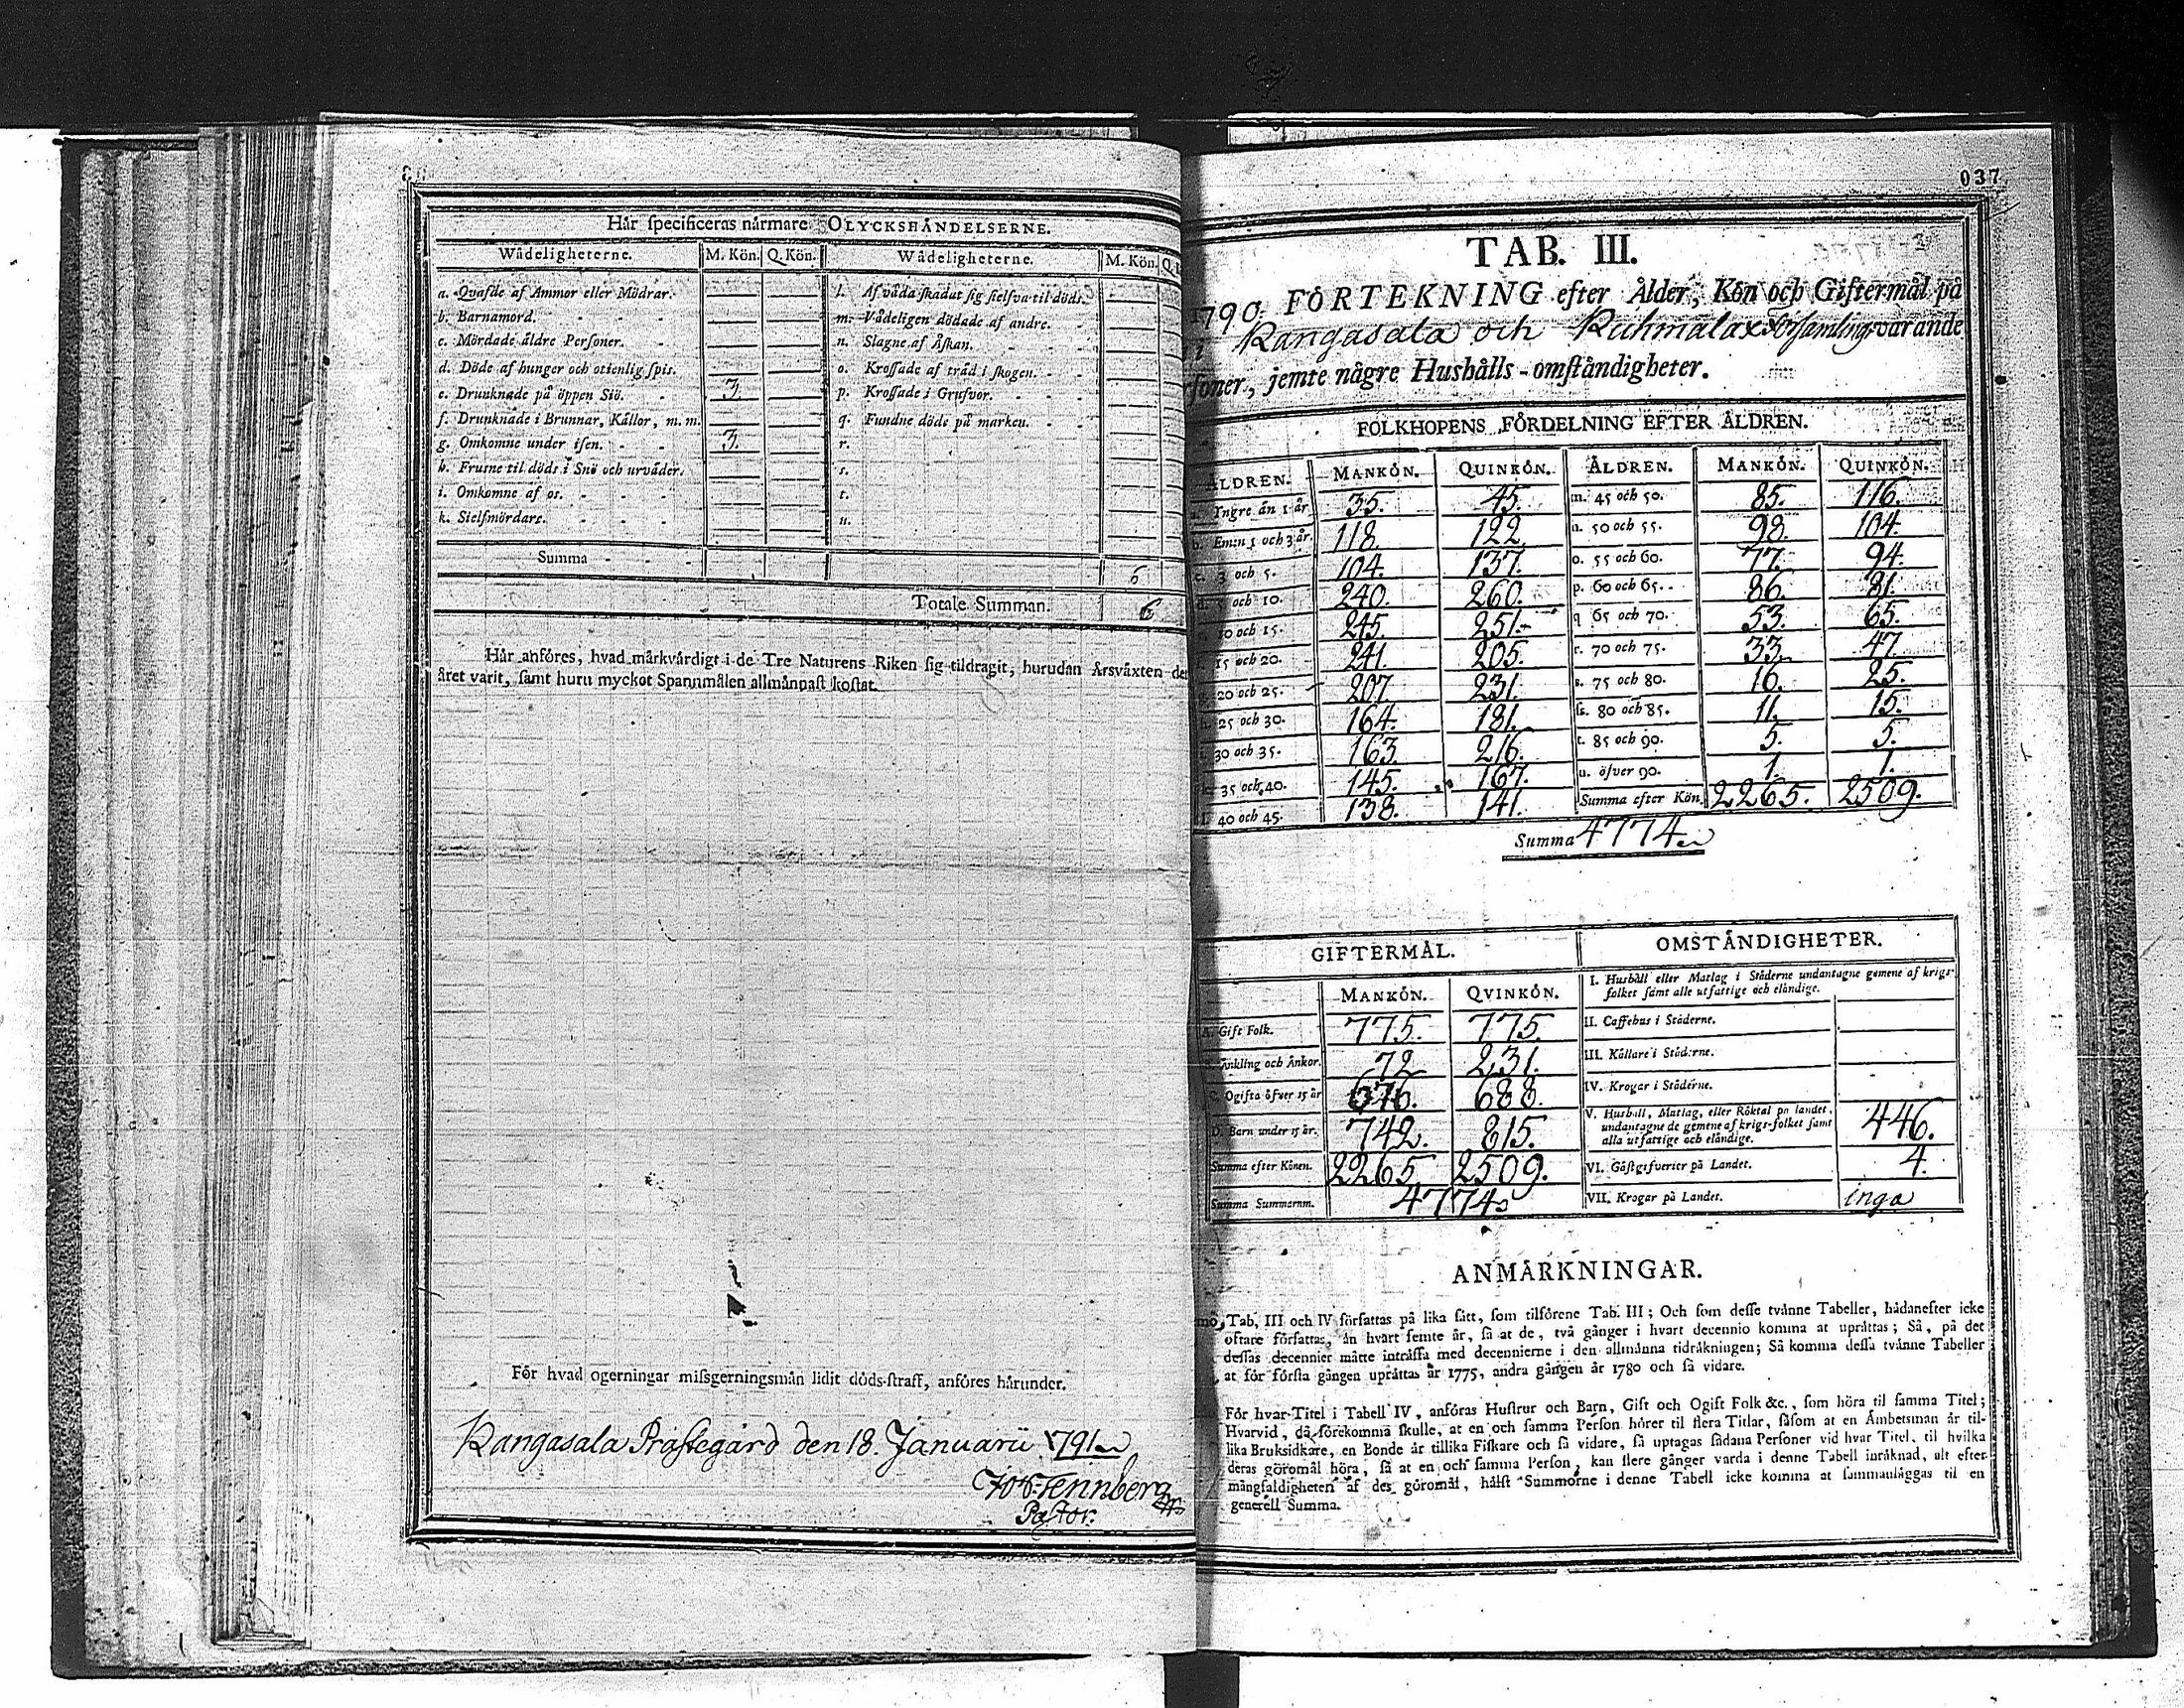 Här specificeras närmare OLYCKSHÄNDELSERNE.
Wådeligheterne. M. Kön. Q. Kön. Wådeligheterne. M. Kön.
a. Qvafde af Ammor eller Mödrar. l. Af våda skadat sig sielfva til döds.
b. Barnamord. m. Vådeligen dödade af andre.
c. Mördade äldre Personer. n. Slagne af Åskan.
d. Döde af hunger och otienlig spis. o. Krossade af träd i skogen.
e. Drunknade på öppen Siö. 3. p. Krossade i Grufvor.
f. Drunknade i Brunnar, Källor, m. m. q. Fundne döde på marken.
g. Omkomne under isen. 3. r.
h. Frusne til döds i Snö och urväder. s.
i. Omkomne af os. t.
k. Sielfmördare. u.
Summa 6
Totale Summan. 6
Här anföres, hvad märkvärdigt i de Tre Naturens Riken sig tildragit, hurudan Årsväxten
året varit, samt huru myckot Spannmålen allmänpast kostat.
För hvad ogerningar missgerningsmän lidit döds-straff, anföres härunder.
Kangasala Prästegård den 18. Januarii 1791
Tennberg
Pastor.
037
TAB. III.
790. FÖRTEKNING efter Ålder, Kön och Giftermål på
i Kangasala och Kuhmalax Församling varande
soner, jemte någre Hushålls-omständigheter.
FOLKHOPENS FÖRDELNING EFTER ÅLDREN.
ÅLDREN. MANKÖN. QUINKÖN. ÅLDREN. MANKÖN. QUINKÖN.
Yngre än 1 år 35. 45. m. 45 och 50. 85. 116.
b. Emen 1 och 3 år 118. 122. n. 50 och 55. 98. 104.
c. 3 och 5. 104. 137. o. 55 och 60. 77. 94.
d. 5 och 10. 240. 260. p. 60 och 65. 86. 81.
10 och 15. 245. 251. q 65 och 70. 53. 65.
15 och 20. 241. 205. r. 70 och 75. 33. 47.
20 och 25. 207. 231. s. 75 och 80. 16. 25.
h. 25 och 30. 164. 181. ss. 80 och 85. 11. 15.
i. 30 och 35. 163. 216. t. 85 och 90. 5. 5.
35 och 40. 145. 167. u. öfver 90. 1. 1.
l. 40 och 45. 138. 141. Summa efter Kön. 2265. 2509.
Summa 4774
GIFTERMÅL. OMSTÄNDIGHETER.
MANKÖN. QVINKÖN. I. Hushåll eller Matlag i Städerne undantagne gemene af krigs-
folket samt alle utfattige och eländige.
Gift Folk. 775. 775. II. Caffehus i Städerne.
Änkling och Änkor. 72 231. III. Källare i Städerne.
C. Ogifta öfver 15 år 676. 688. IV. Krogar i Städerne.
D. Barn under 15 år. 742. 815. V. Hushåll, Matlag, eller Röktal på landet,
undantagne de gemene af krigs-folket samt
alla utfattige och eländige. 446.
Summa efter Könen. 2265 2509. VI. Gästgifverier på Landet. 4.
Summa Summarum. 4774 VII. Krogar på Landet. inga
ANMÄRKNINGAR.
mo, Tab. III och IV författas på lika sätt, som tilförene Tab. III; Och som desse tvänne Tabeller, hädanefter icke
oftare författas, än hvart femte år, så at de, två gånger i hvart decennio komma at uprättas; Så, på det
dessas decennier måtte inträffa med decennierne i den allmänna tidräkningen; Så komma dessa tvänne Tabeller
at för första gången uprättas år 1775, andra gången år 1780 och så vidare.
För hvar Titel i Tabell IV, anföras Hustrur och Barn, Gift och Ogift Folk &c., som höra til samma Titel;
Hvarvid, då förekomma skulle, at en och samma Person hörer til flera Titlar, såsom at en Ämbetsman är til-
lika Bruksidkare, en Bonde är tillika Fiskare och så vidare, så uptagas sådana Personer vid hvar Titel, til hvilka
deras göromål höra, så at en och samma Person, kan flere gånger varda i denne Tabell inräknad, alt efter
mångfaldigheten af des göromål, hälst Summorne i denne Tabell icke komma at sammanläggas til en
generell Summa.